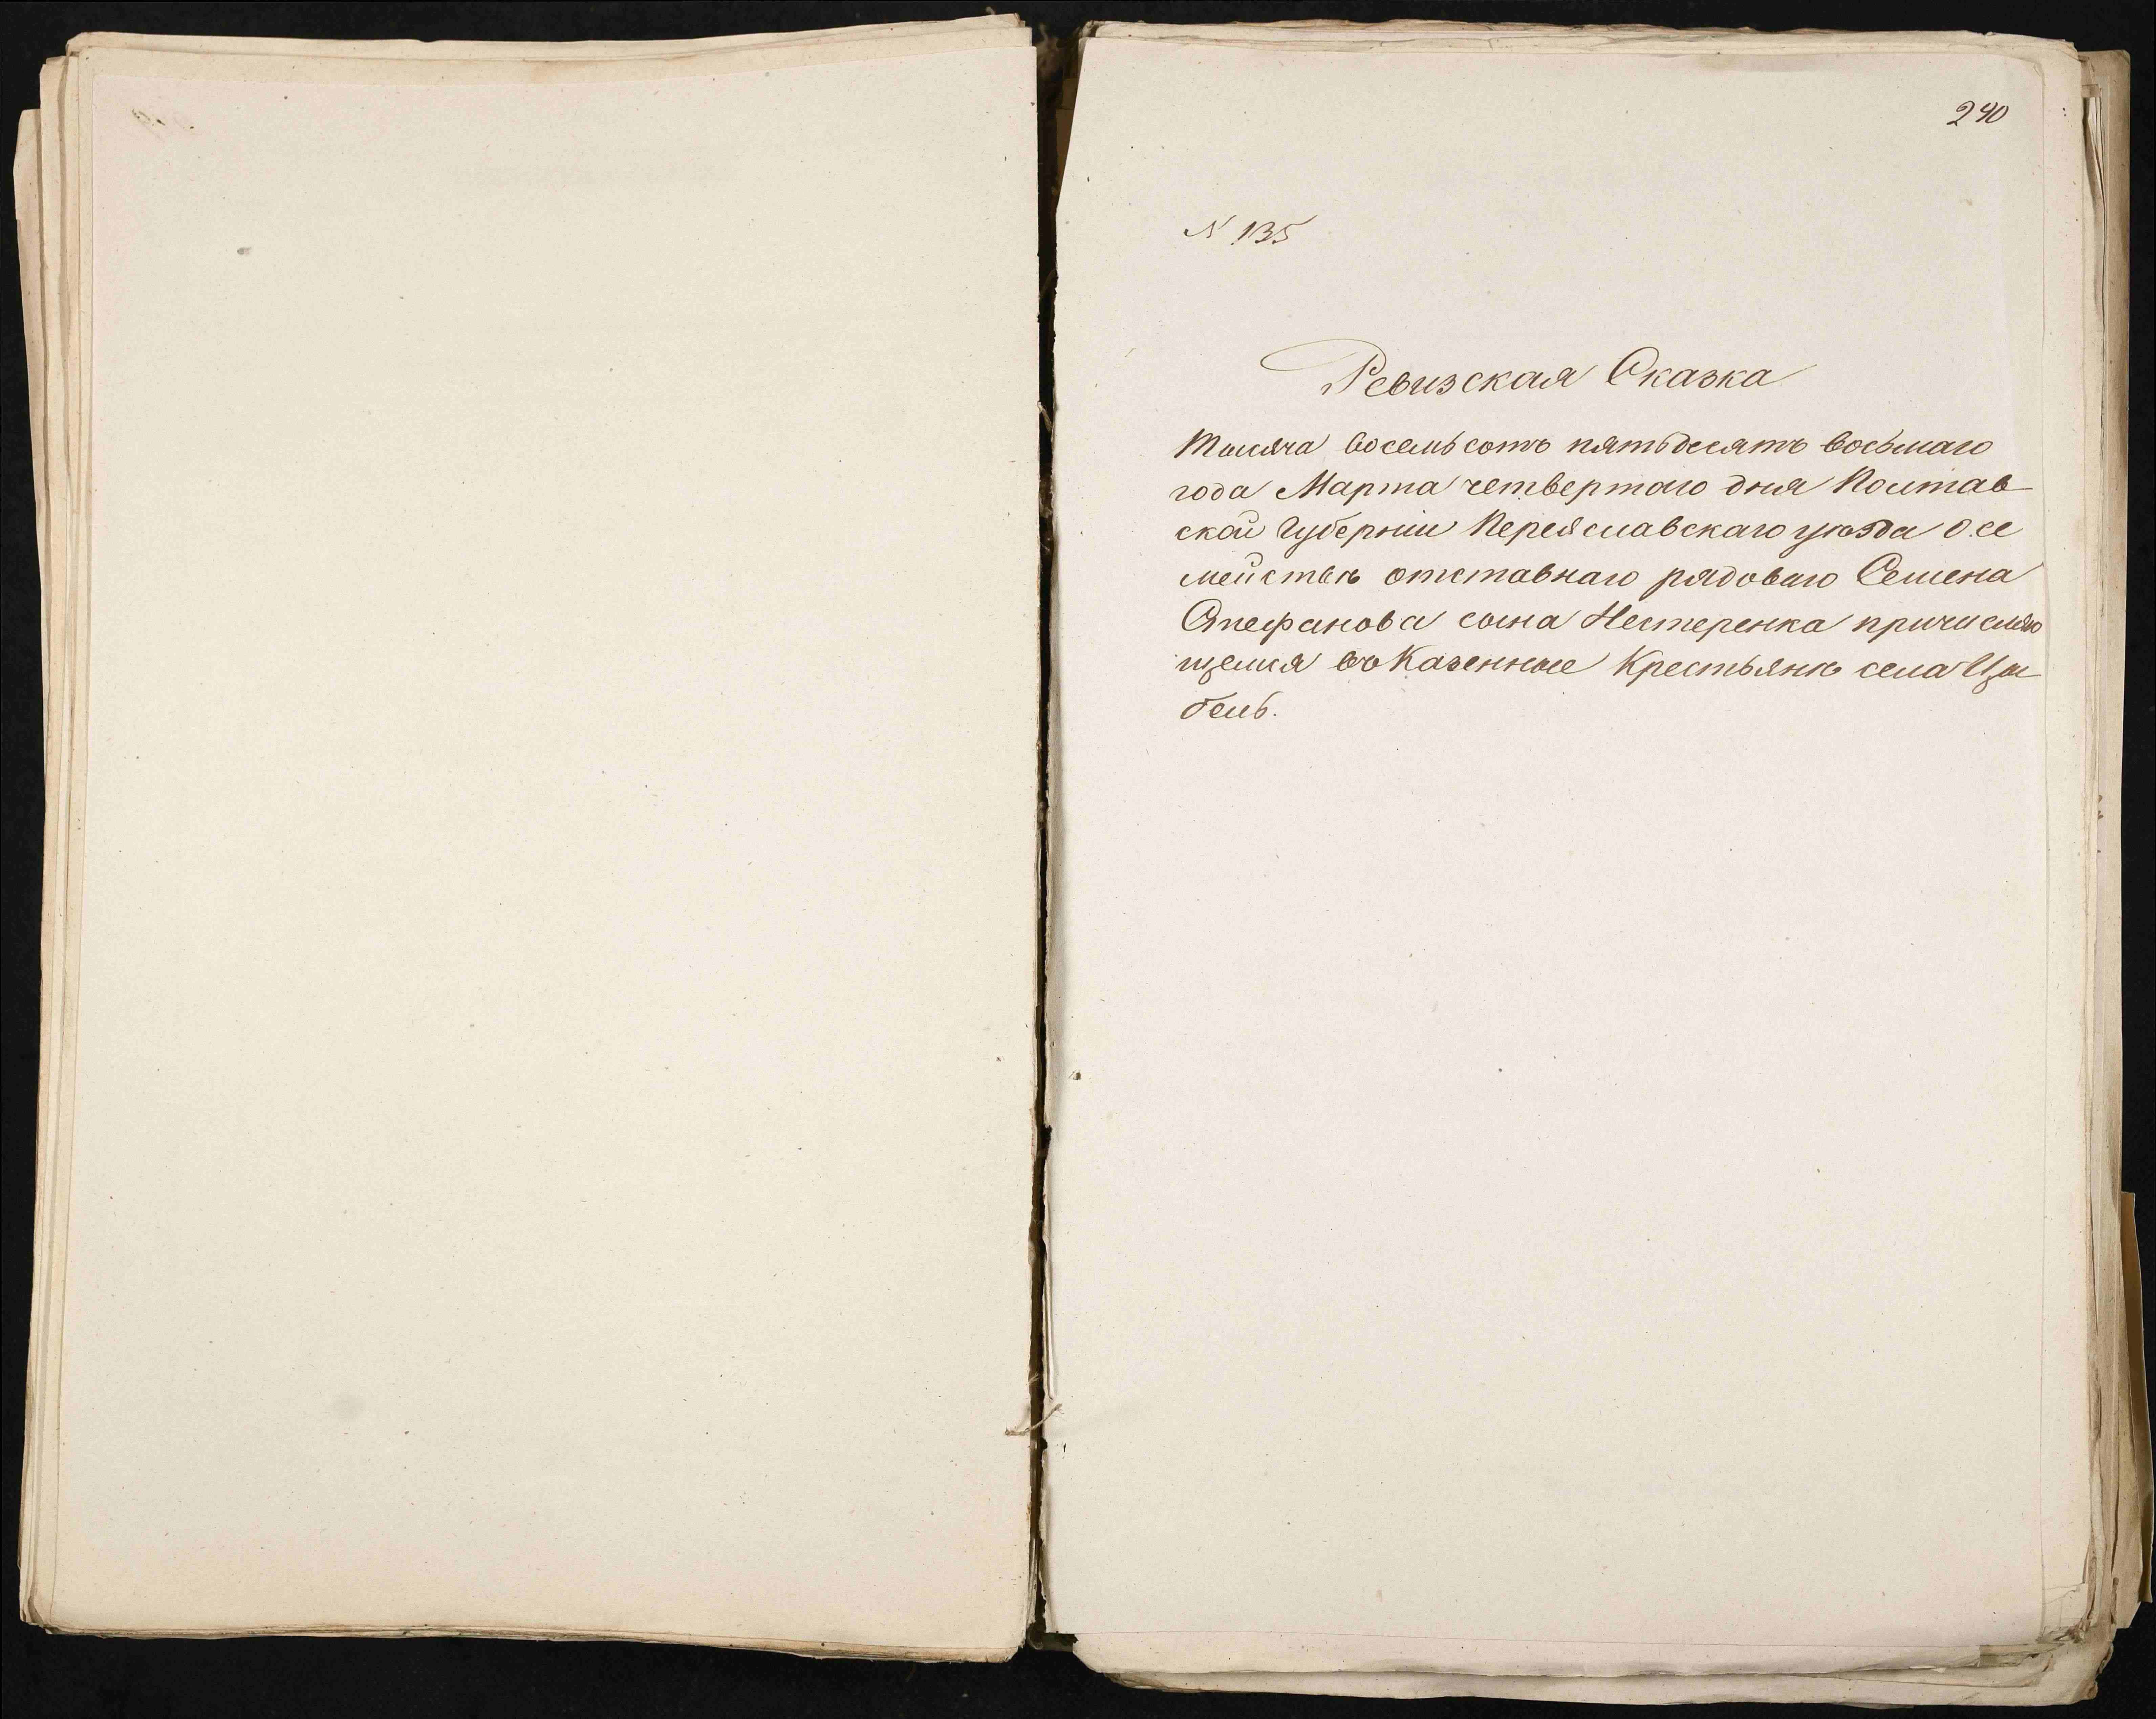 240
N 135
Ревизская Сказка
Тысяча восемьсотъ пятьдесятъ восьмаго
года Марта четвертаго дня Полтав
ской Губерніи Переяславскаго уѣзда о се
мействѣ отставнаго рядоваго Семена
Степанова сына Нестеренка причисляю
щемся въ Казенные Крестьянѣ села Цы
бель.